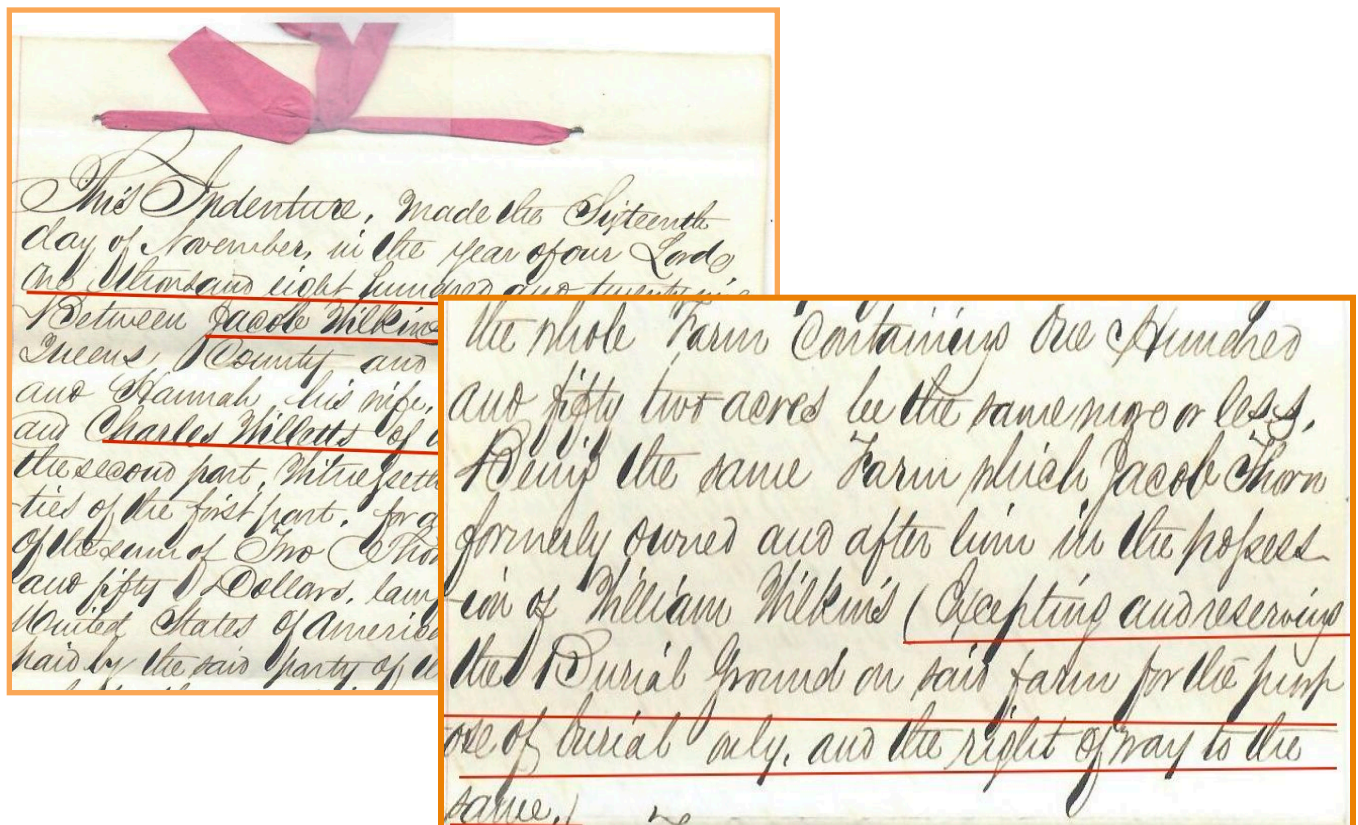 This Indenture, made the Sixteenth
day of November, in the year of our Lord
one thousand eight hundred and twenty
Between Jacob Wilkins
Queens, County and
and Hannah his wife,
and Charles Willetts of
the second part, Witnesseth
ties of the first part, for
of the sum of Two Thou
and fifty Dollars, law
United States of America
paid by the said party of th
the whole Farm Containing One Hundred
and fifty two acres be the same more or less,
Being the same Farm which Jacob Thorn
formerly owned and after him in the possess
-ion of William Wilkins (Excepting and reserving
the Burial Ground on said farm for the purp
ose of burial only, and the right of way to the
same.)